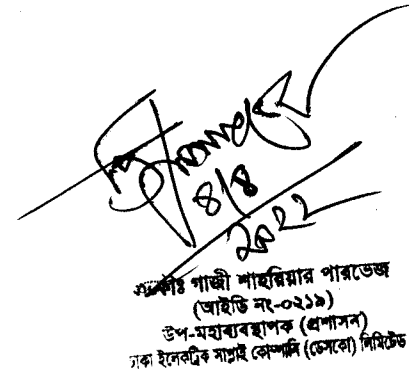 ৪/৪
২০২২
প্রকৌঃ গাজী শাহরিয়ার পারভেজ
(আইডি নং-০২১৯)
উপ-মহাব্যবস্থাপক (প্রশাসন)
ঢাকা ইলেকট্রিক সাপ্লাই কোম্পানি (ডেসকো) লিমিটেড